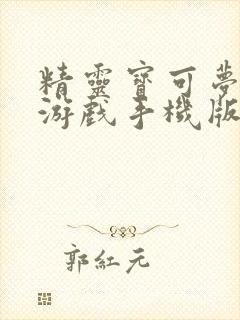 精靈寶可夢
游戲手機版
郭紅元